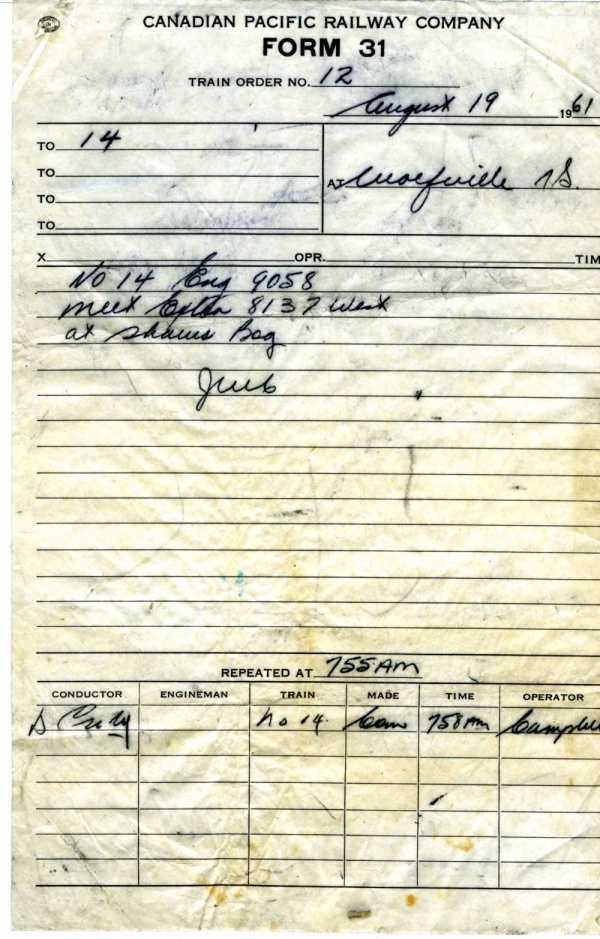 CANADIAN PACIFIC RAILWAY COMPANY
FORM 31
TRAIN ORDER NO. 12
August 19 1961
TO 14
TO
TO
TO
AT Wolfville NS.
X OPR. TIM
No 14 Eng 9058
meet Extra 8137 West
at Shaws Bog
REPEATED AT 755 AM
CONDUCTOR ENGINEMAN TRAIN MADE TIME OPERATOR
No 14. Com 758 AM Campbell